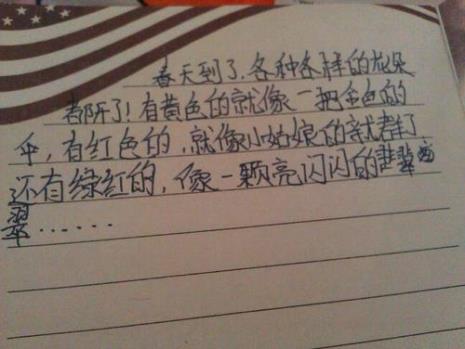 春天到了,各种各样的花朵
都开了!有黄色的就像一把金色的
伞,有红色的,就像小姑娘的
还有绿红的,像一颗亮闪闪的翡翠
翠……